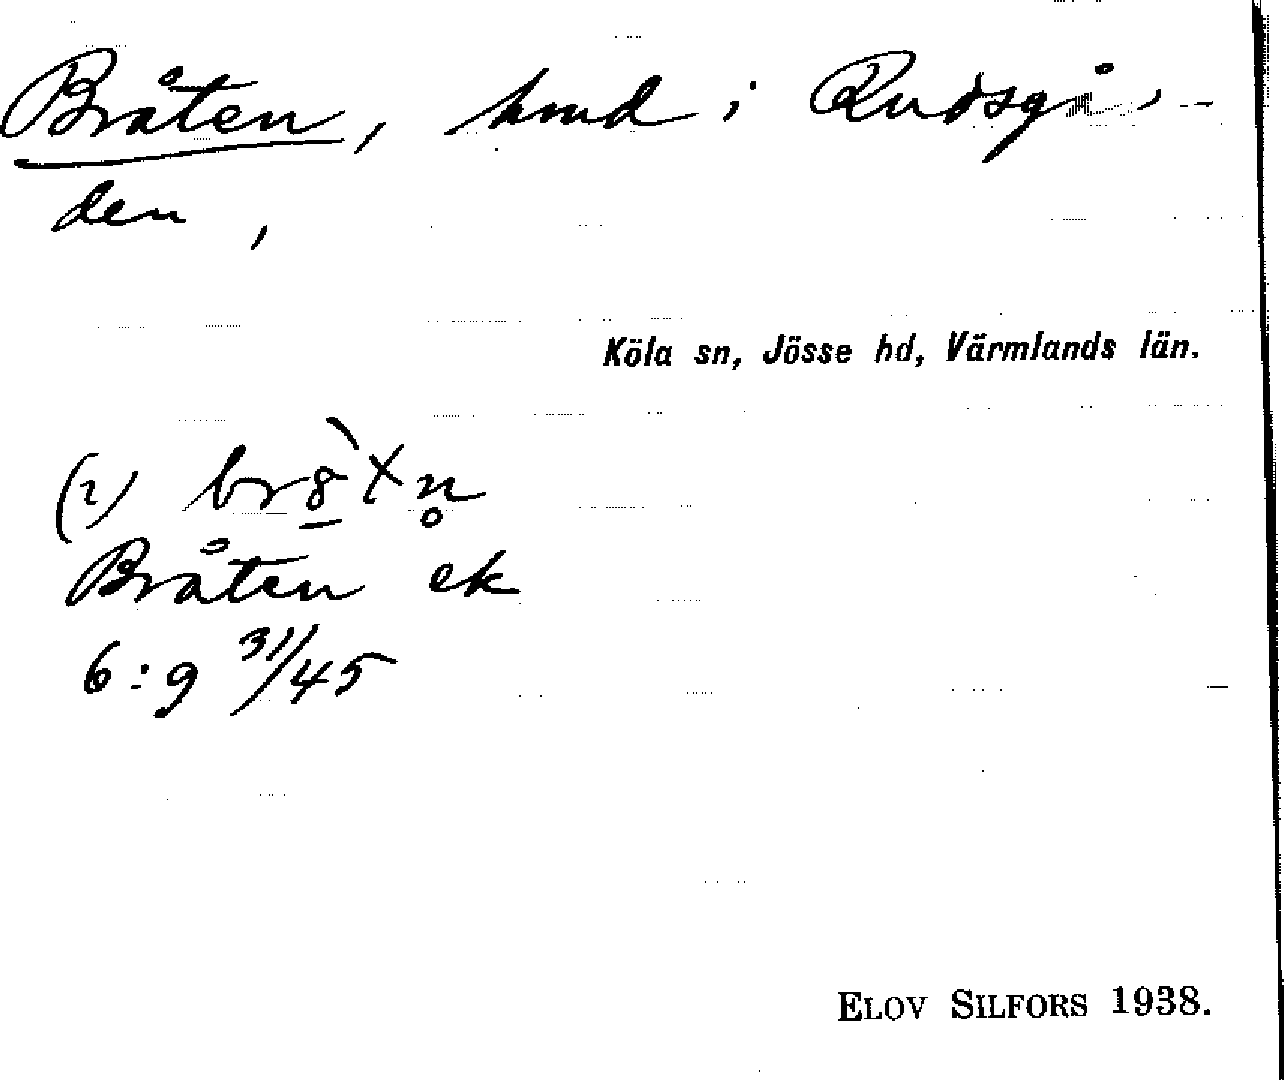 Bråten, hmd i Rudsgår-
den,
Köla sn, Jösse hd, Värmlands län.
(2) br8̲̀tn̥
Bråten ek
6:9 31/45
ELOV SILFORS 1938.